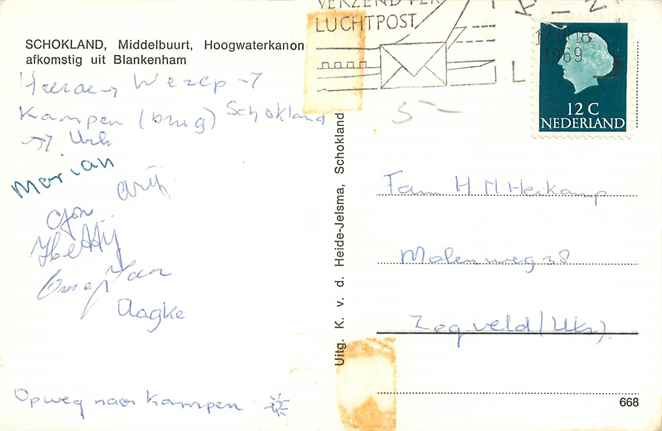 SCHOKLAND, Middelbuurt, Hoogwaterkanon
afkomstig uit Blankenham
Wezep →
Kampen (brug) Schokland
→ Urk
Marian
Hetty
Aagke
Opweg naar Kampen
Uitg. K. v. d. Heide-Jelsma, Schokland
VERZEND PER
LUCHTPOST
1969
12 C
NEDERLAND
5-
Fam H M Herkamp
Molenweg 38
Zegveld (Utr).
668